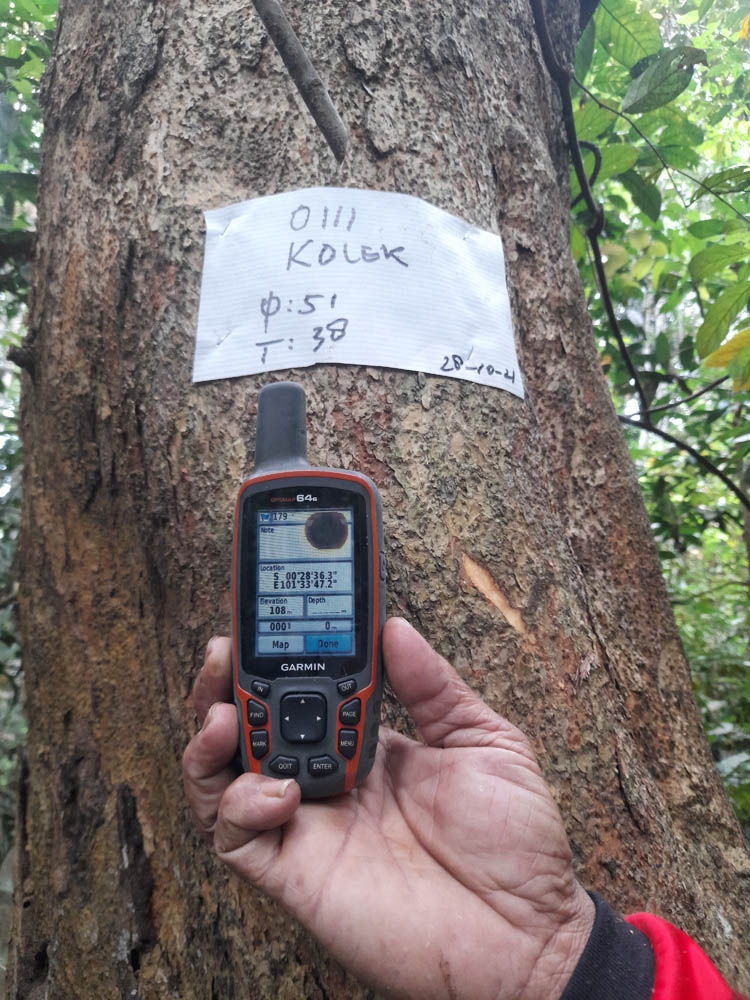 0111
KOLEK
φ: 51
T: 38
28-10-21
GPSMAP 64s
179
Note
Location
S 00°28'36.3"
E101°33'47.2"
Elevation Depth
108m ____m
0m
Map Done
GARMIN
IN OUT
FIND PAGE
MARK MENU
QUIT ENTER